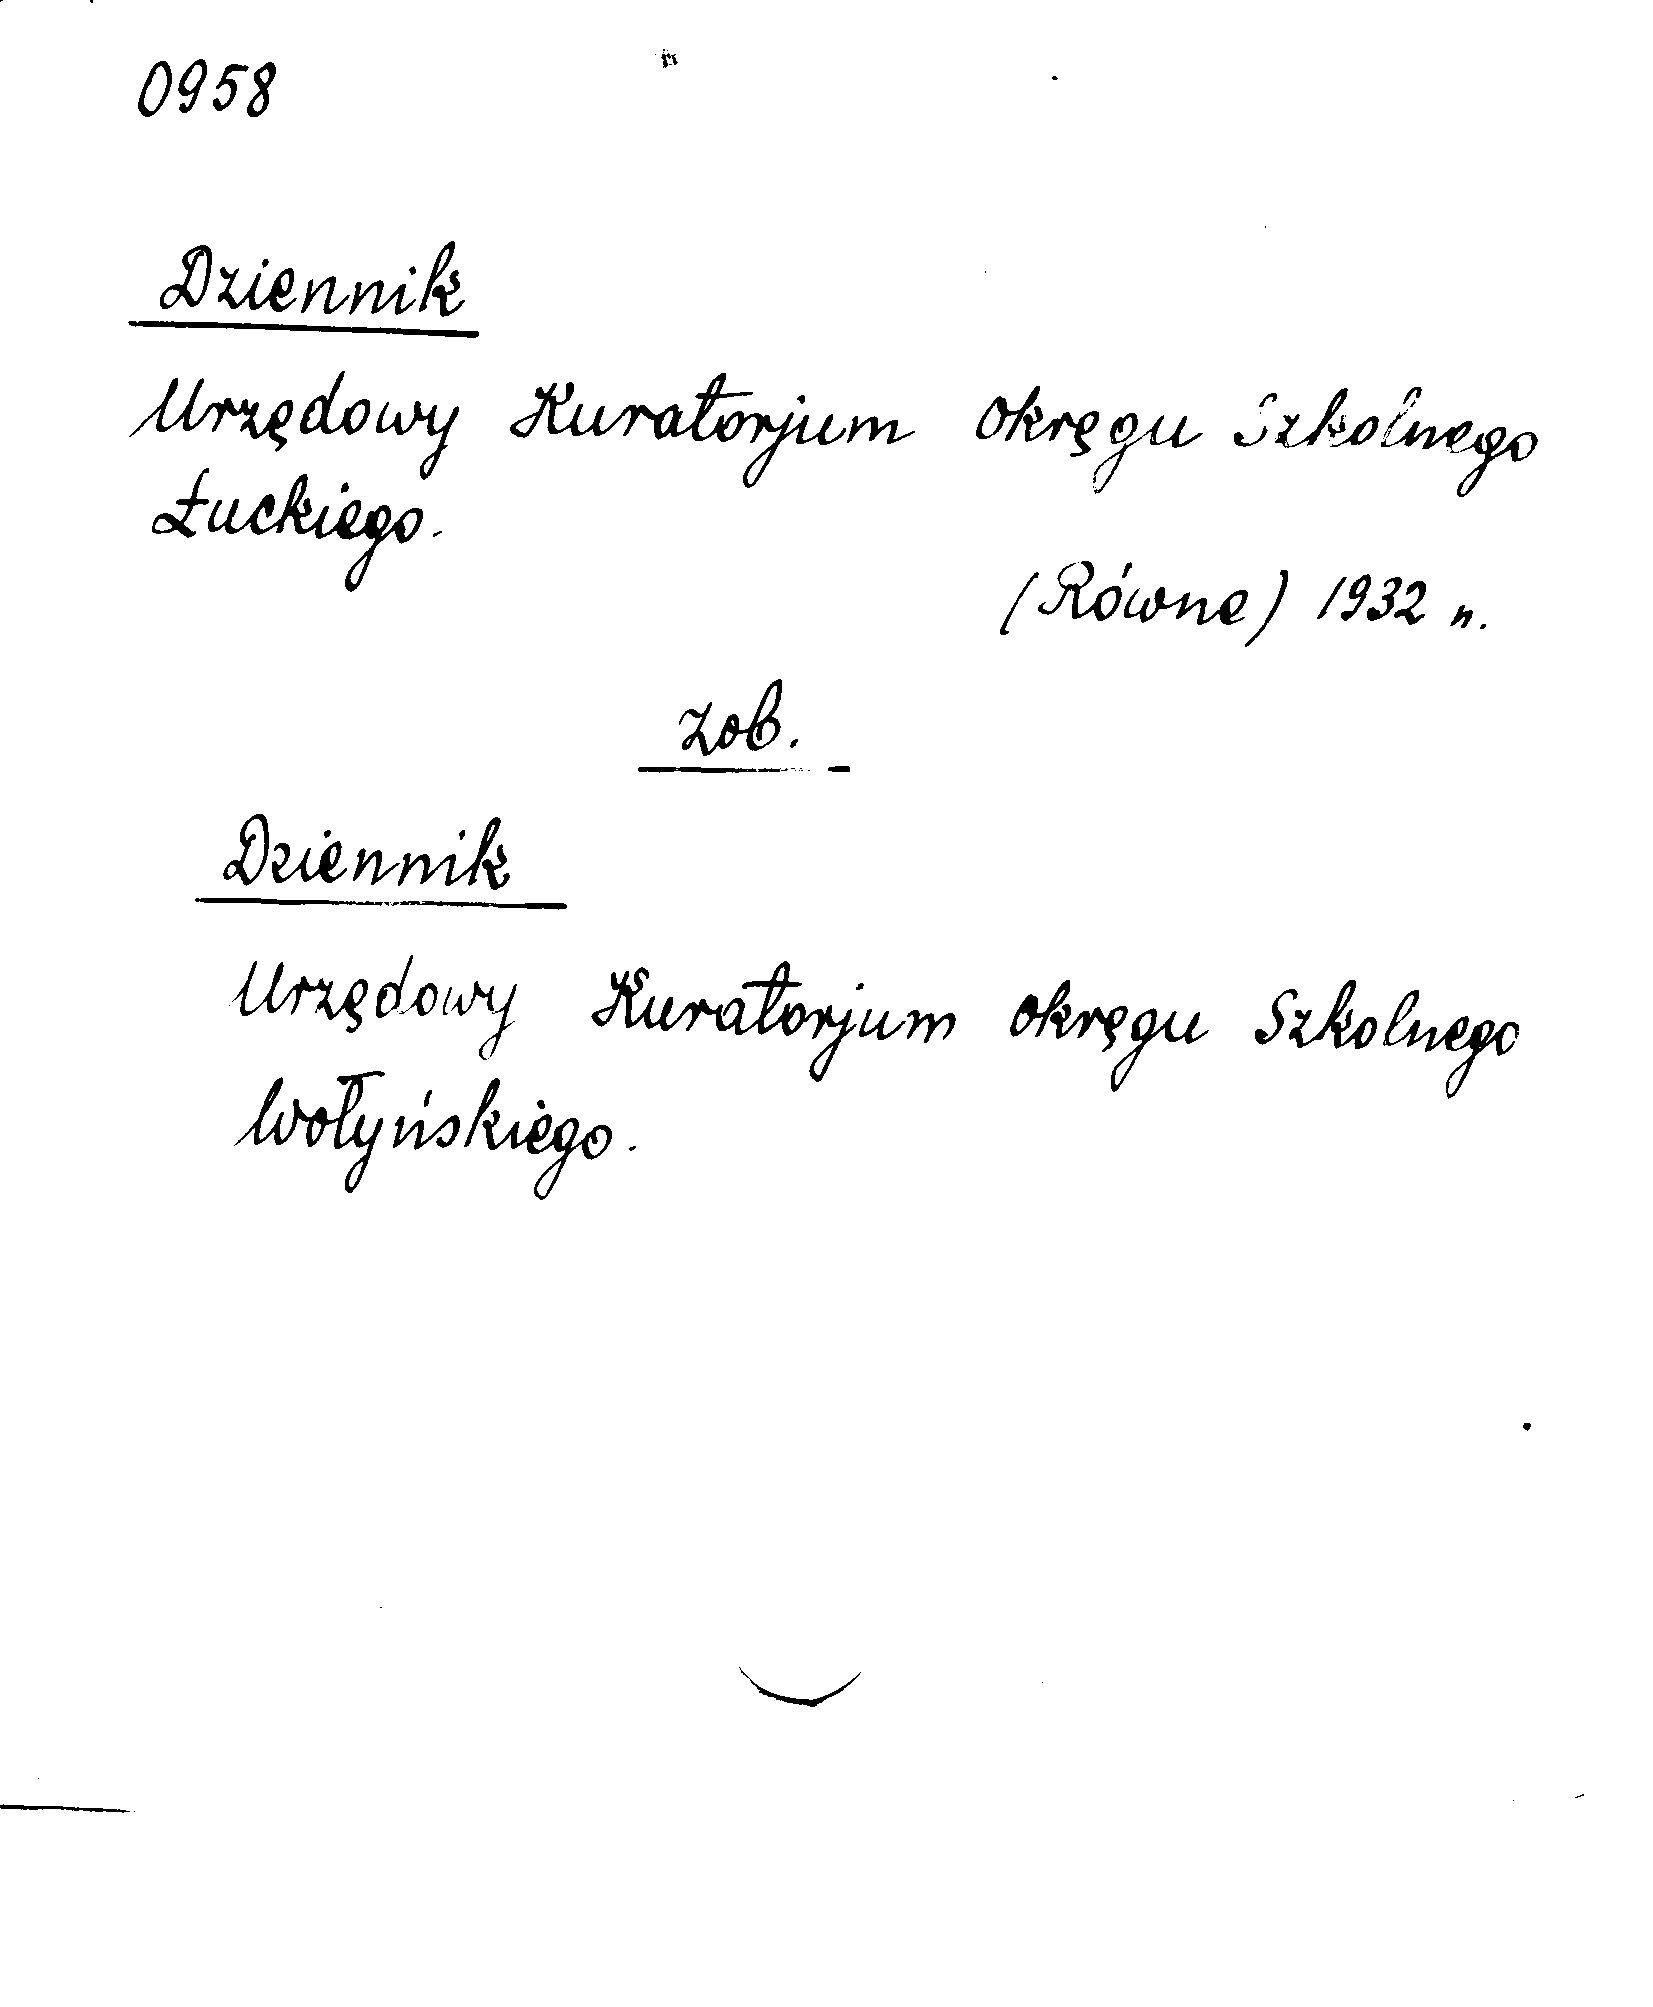 0958
Dziennik
Urzędowy Kuratorjum Okręgu Szkolnego
Łuckiego.
(Równe) 1932 n.
zob.
Dziennik
Urzędowy Kuratorjum Okręgu Szkolnego
Wołyńskiego.